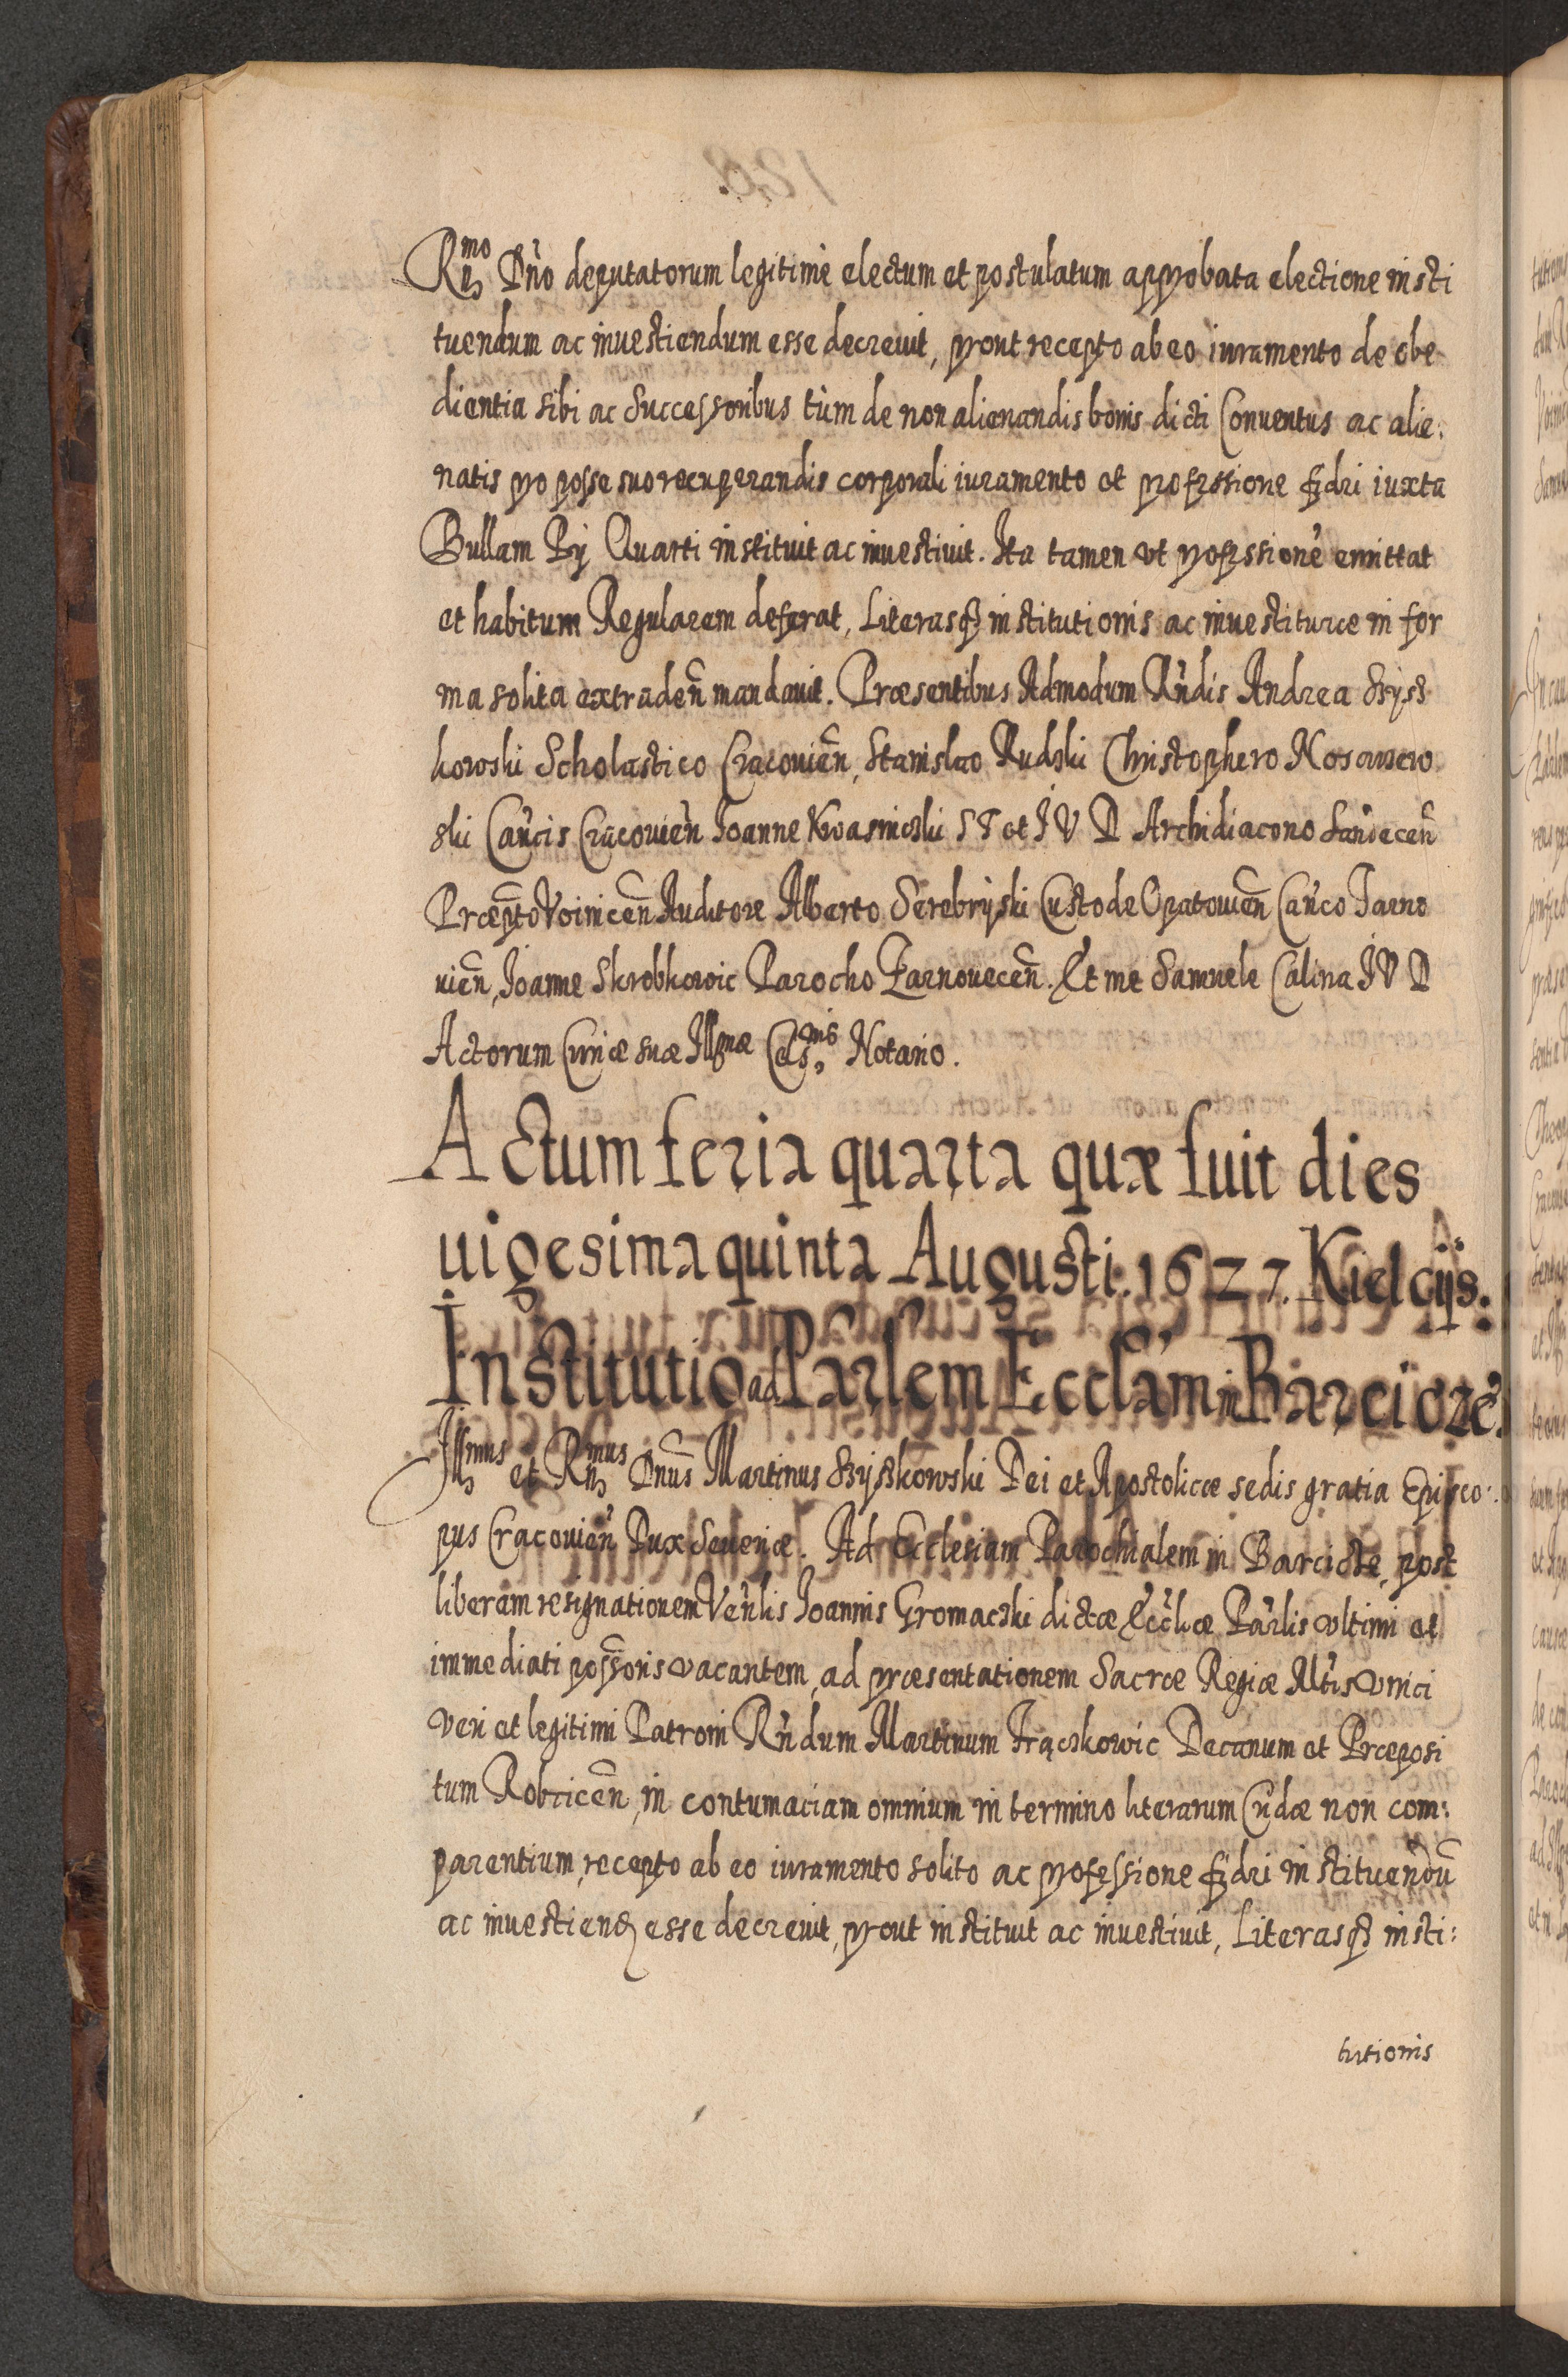 Rmo Dno deputatorum legitimè electum et postulatum approbata electione insti
tuendum ac inuestiendum esse decreuit, prout recepto ab eo iuramento de obe
dientia sibi ac Successoribus tùm de non alienandis bonis dicti Conuentus ac alie:
natis pro posse suo recuperandis corporali iuramento et professione fidei iuxta
Bullam Pij Quarti instituit ac inuestiuit. Ita tamen vt professionē emittat
et habitum Regularem deferat, Literasq institutionis ac inuestituræ in for
ma solita extraden̄ mandauit. Præsentibus Admodum Rndis Andrea Szysz
kowski Scholastico Cracouien̄, Stanislao Rudzki Christophero Nosarzew
ski Can̄cis Cracouien̄ Joanne Kwasnicki S T et I V D Archidiacono Sandecen̄
Præpto Voinicen̄ Auditore Alberto Serebryski Custode Opatouien̄ Can̄co Tarno
uien̄, Joanne Skrobkowic Parocho Żarnouecen̄. Et me Samuele Calina I V D
Actorum Curiæ suæ Illmæ Celsnis Notario.
Actum feria quarta quæ fuit dies
uigesima quinta Augusti. 1627. Kielcijs.
Institutio ad Parlem Ecclām in Barcice.
Illmus et Rmus Dnus Martinus Szyszkowski Dei et Apostolicæ sedis gratia Episco:
pus Cracouien̄ Dux Seueriæ. Ad Ecclesiam Parochialem in Barcice, post
liberam resignationem Ven̄lis Joannis Gromacki dictæ Ecc̄liæ Par̄lis vltimi et
immediati poss̄oris vacantem, ad præsentationem Sacræ Regiæ Mtis vnici
veri et legitimi Patroni Rn̄dum Martinum Frąckowic Decanum et Præposi
tum Robcicen̄, in contumaciam omnium in termino literarum Cn̄dæ non com:
parentium, recepto ab eo iuramento solito ac professione fidei instituendū
ac inuestiend esse decreuit, prout instituit ac inuestiuit, Literasq insti:
tutionis